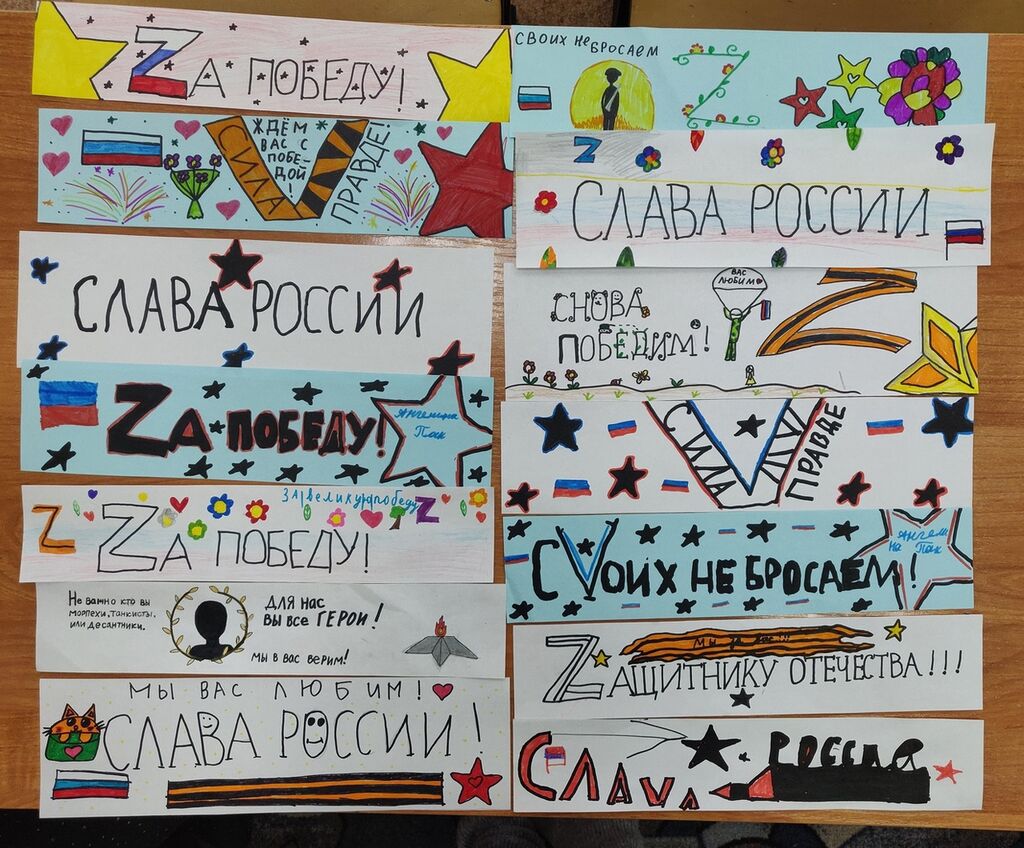 Zа победу!
Ждём
вас с
побе-
дой
!
Сила
V
правде!
Слава России
Zа победу!
Ангелина
Пак
За великую победу
Z
Z
Zа победу!
Не важно кто вы
морпехи, танкисты
или десантники.
Для нас
вы все герои!
Мы в вас верим!
Мы вас любим!
Слава России!
Своих не бросаем
Z
Z
Слава России
Вас
любим
Снова
победим!
Z
Сила
V
правде
СVоих не бросаем!
Ангели
на Пак
Мы за вас!!!
Zащитнику Отечества!!!
Слава
Россия